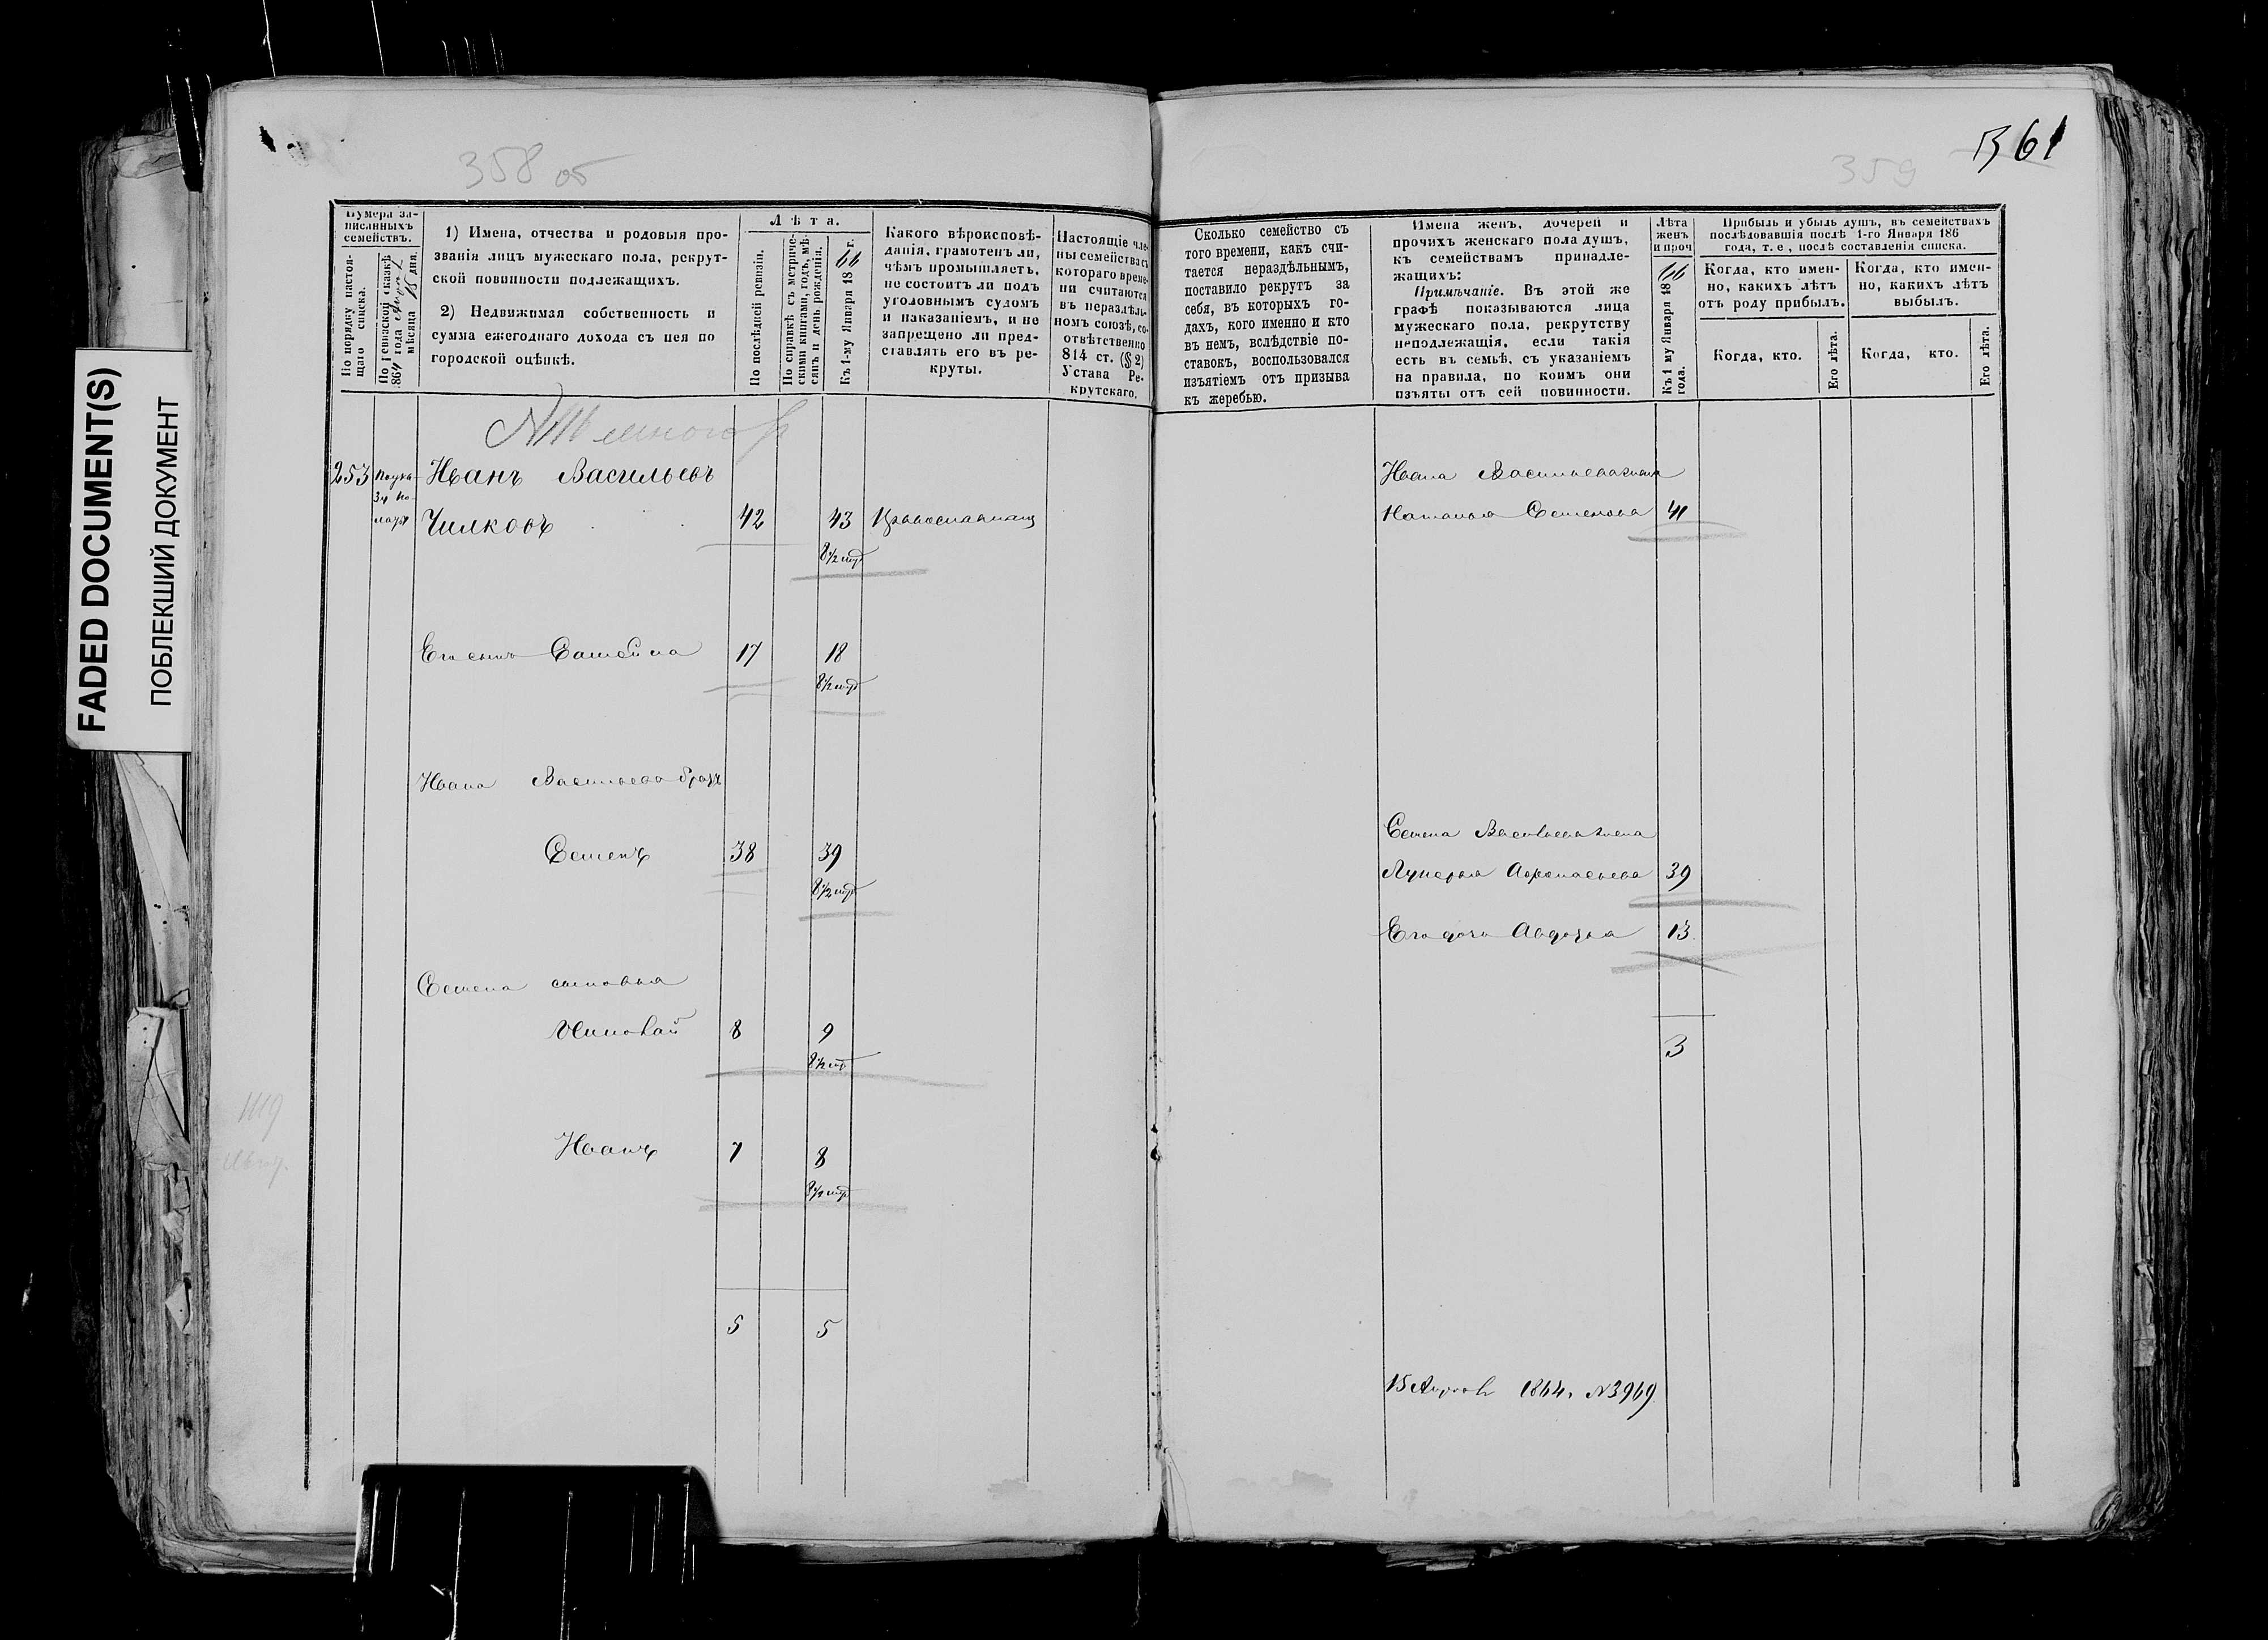 FADED DOCUMENT(S)
ПОБЛЕКШИЙ ДОКУМЕНТ
358 об
Нумера за-
писанныхъ
семействъ.
По порядку настоя-
щаго списка.
По ревизской сказкѣ
1864 года Апрѣл
мѣсяца 15 дня.
1) Имена, отчества и родовыя про-
званія лицъ мужескаго пола, рекрут-
ской повинности подлежащихъ.
2) Недвижимая собственность и
сумма ежегоднаго дохода съ нея по
городской оцѣнкѣ.
Лѣта.
По послѣдней ревизіи.
По справкѣ съ метриче-
скими книгами, годъ, мѣ-
сяцъ и день рожденія.
Къ 1-му Января 1866 г.
Какого вѣроисповѣ-
данія, грамотенъ ли,
чѣмъ промышляетъ,
не состоитъ ли подъ
уголовнымъ судомъ
и наказаніемъ, и не
запрещено ли пред-
ставлять его въ ре-
круты.
Настоящіе чле-
ны семейства съ
котораго време-
ни считаются
въ нераздѣль-
номъ союзѣ, со-
отвѣтственно
814 ст. (§ 2)
Устава Ре-
крутскаго.
253 Иванъ Васильевъ
Чилковъ 42 43 Православнаго
8 1/2
Его сынъ 17 18
8 1/2
Ивана Васильева братъ
Семенъ 38 39
8 1/2
Семена сыновья
Николай 8 9
8 1/2
Иванъ 7 8
8 1/2
5 5
1119
361
359
Сколько семейство съ
того времени, какъ счи-
тается нераздѣльнымъ,
поставило рекрутъ за
себя, въ которыхъ го-
дахъ, кого именно и кто
въ немъ, вслѣдствіе по-
ставокъ, воспользовался
изъятіемъ отъ призыва
къ жеребью.
Имена женъ, дочерей и
прочихъ женскаго пола душъ,
къ семействамъ принадле-
жащихъ:
Примѣчаніе. Въ этой же
графѣ показываются лица
мужескаго пола, рекрутству
неподлежащія, если такія
есть въ семьѣ, съ указаніемъ
на правила, по коимъ они
изъяты отъ сей повинности.
Лѣта
женъ
и проч
Къ 1 му Января 1866
года.
Прибыль и убыль душъ, въ семействахъ
послѣдовавшія послѣ 1-го Января 186
года, т. е, послѣ составленія списка.
Когда, кто имен-
но, какихъ лѣтъ
отъ роду прибылъ.
Когда, кто имен-
но, какихъ лѣтъ
выбылъ.
Когда, кто.
Его лѣта.
Когда, кто.
Его лѣта.
Ивана Васильева жена
Наталья Семенова 41
Семена Васильева жена
Лукерья Афонасьева 39
Его дочь Авдотья 13
3
15 Апрѣля 1864. N3969